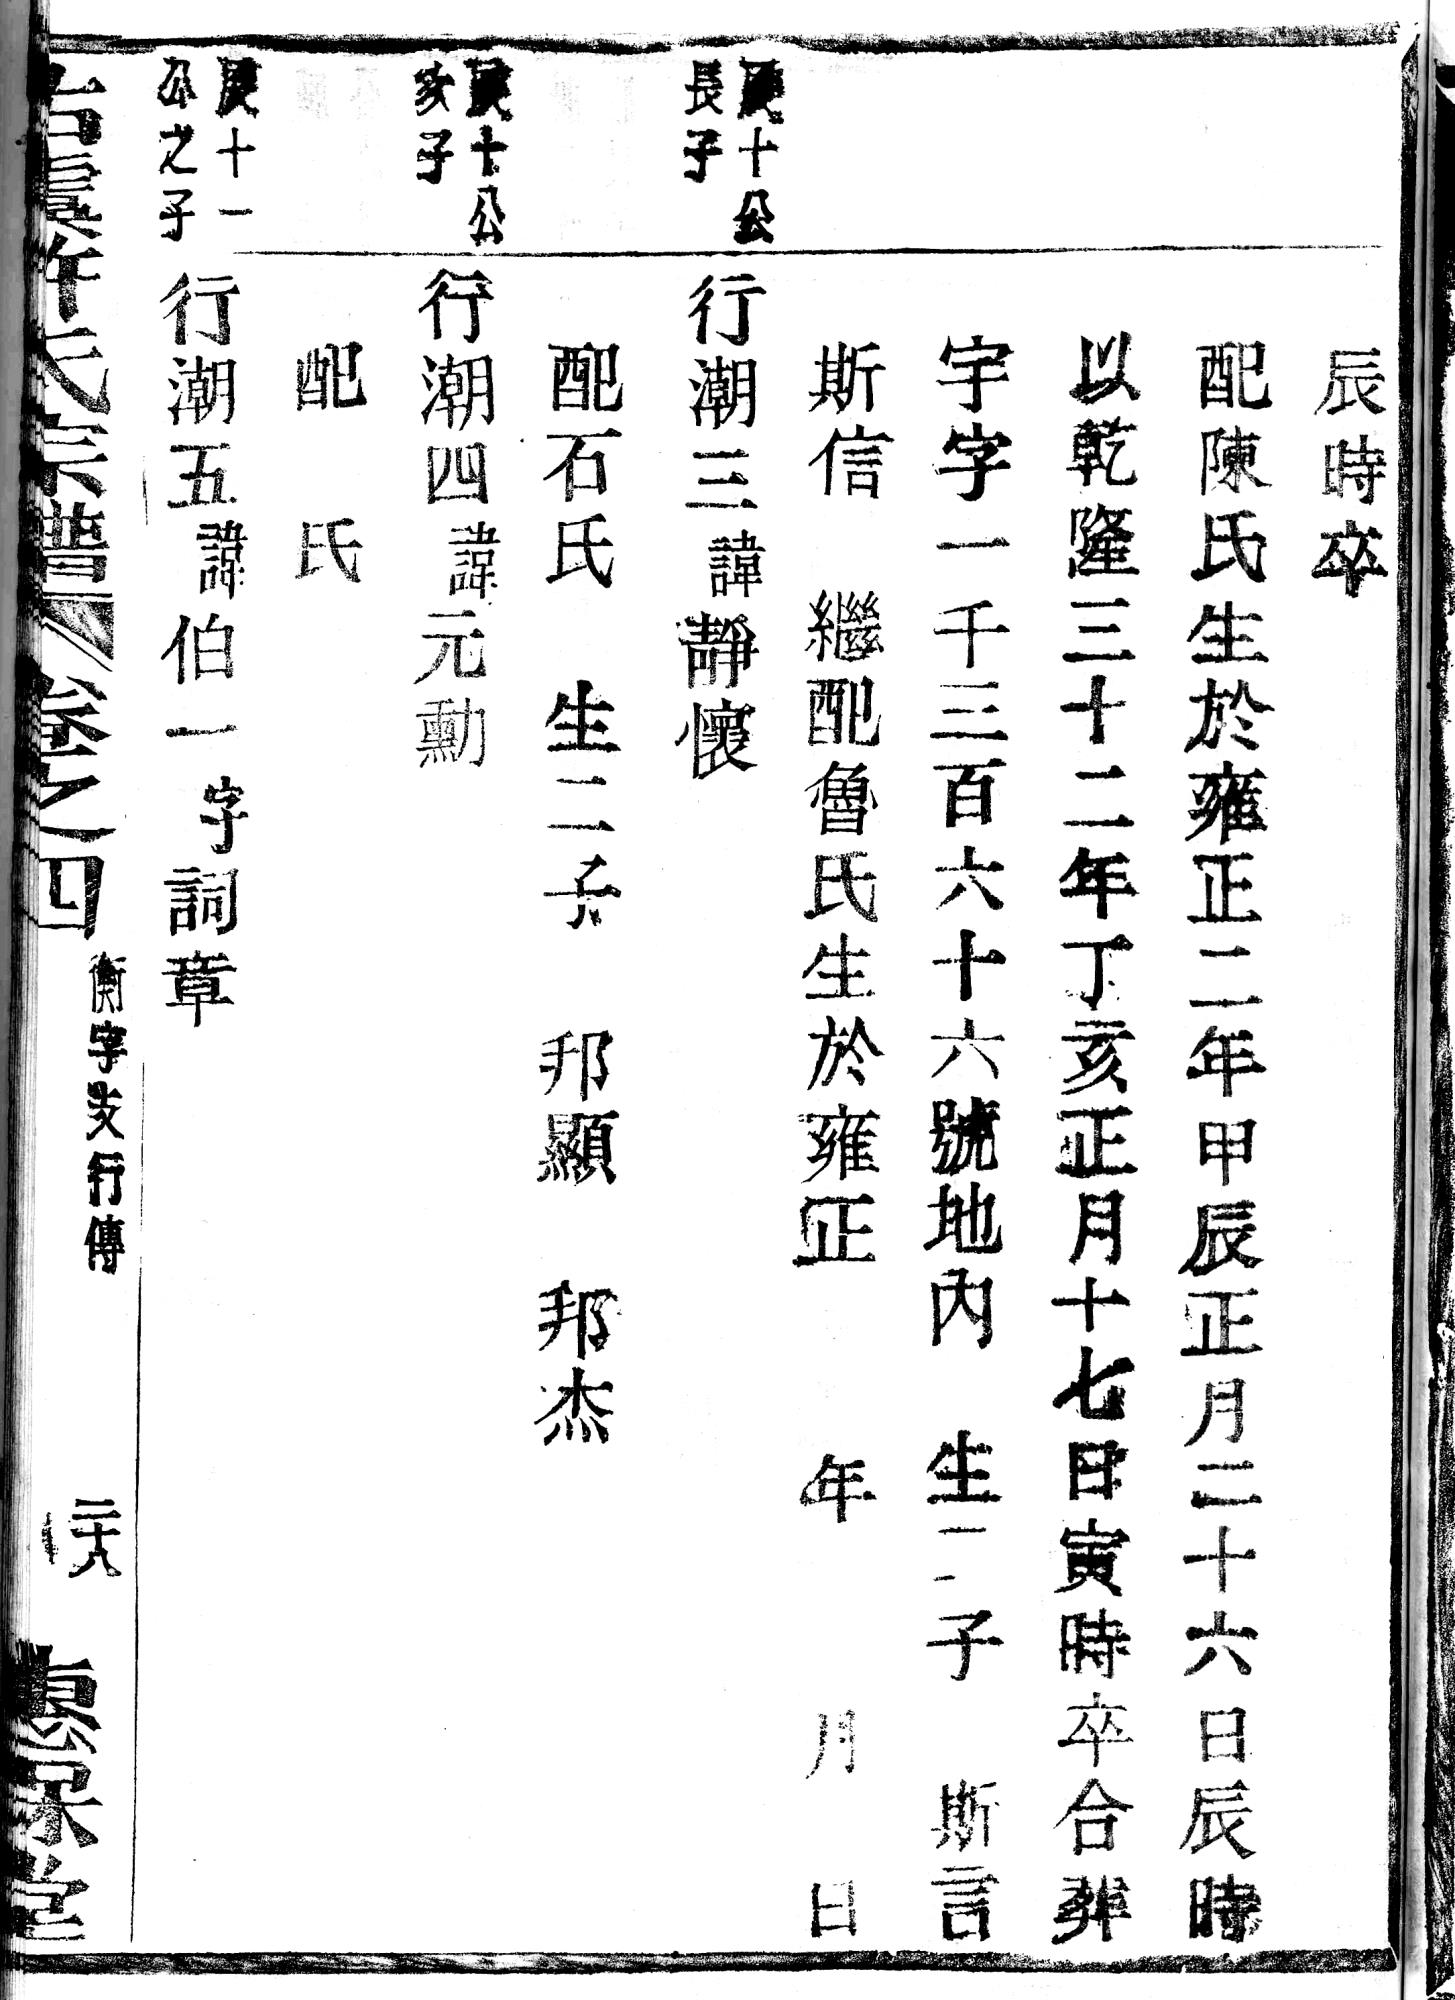 辰時卒
配陳氏生於雍正二年甲辰正月二十六日辰時
以乾隆三十二年丁亥正月十七日寅時卒合葬
宇字一千三百六十六號地內　生二子　斯言
斯信　繼配魯氏生於雍正　年　月　日
十公
長子
行潮三諱靜懷
配石氏　生二子　邦顯　邦杰
十公
次子
行潮四諱元勳
配　氏
十一
公之子
行潮五諱伯一字詞章
古虞許氏宗譜　卷之四　衡字支行傳　二十八　惠保堂